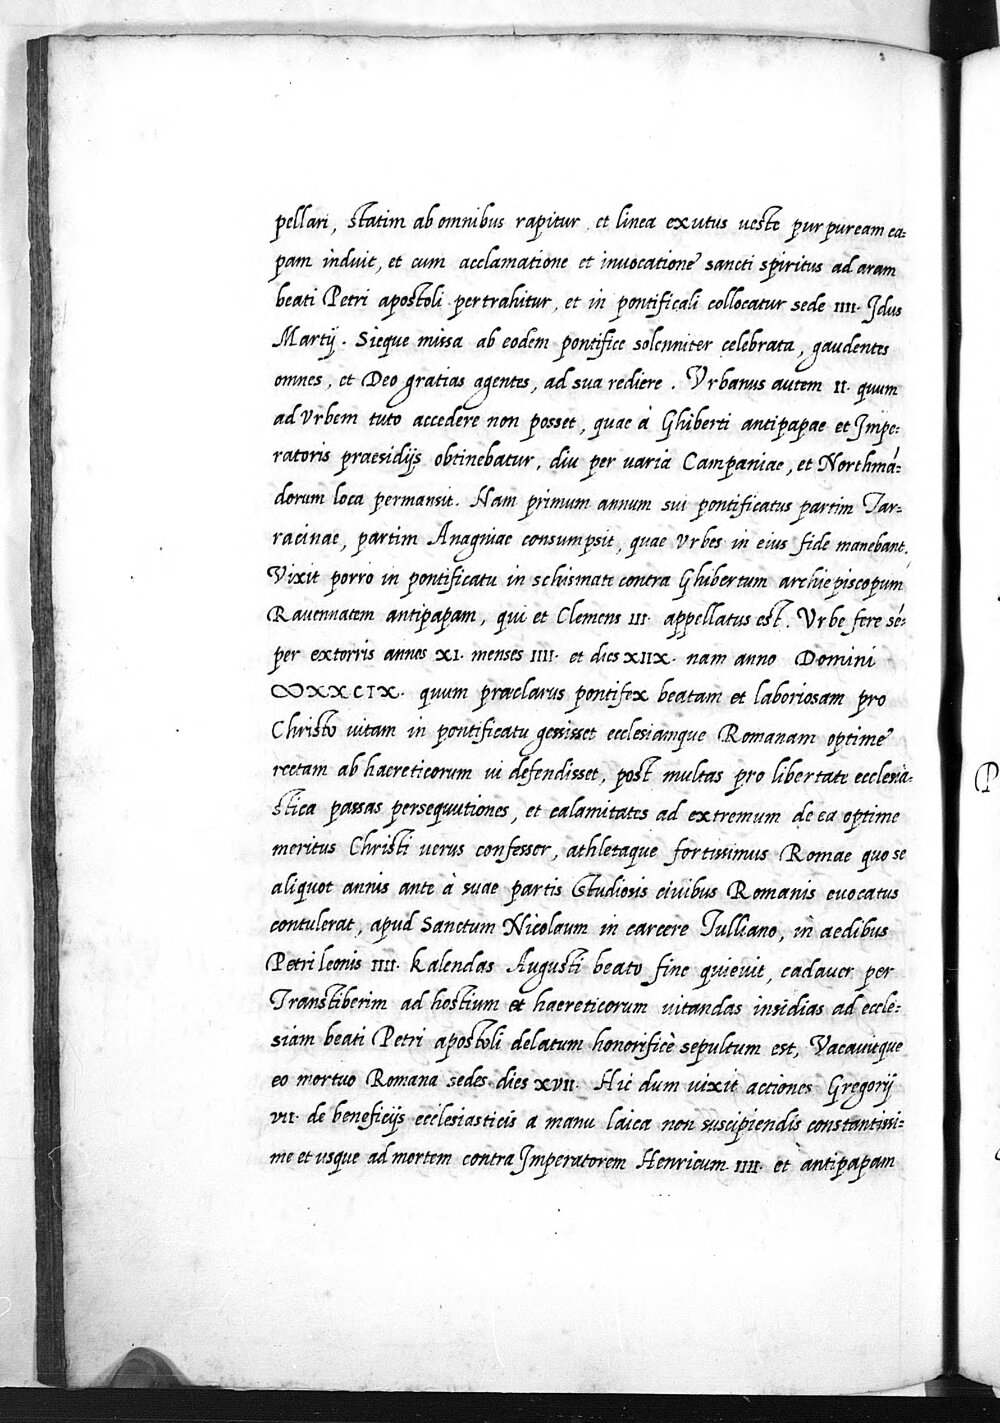 pellari, statim ab omnibus rapitur et linea exutus ueste purpuream ca-
pam induit, et cum acclamatione et inuocatione sancti spiritus ad aram
beati Petri apostoli pertrahitur, et in pontificali collocatur sede IIII. Idus
Martij. Sicque missa ab eodem pontifice solenniter celebrata, gaudentes
omnes, et Deo gratias agentes, ad sua rediere. Vrbanus autem II. quum
ad Vrbem tuto accedere non posset, quae à Ghiberti antipapae et Impe:
ratoris praesidijs obtinebatur, diu per uaria Campaniae, et Northmá:
dorum loca permansit. Nam primum annum sui pontificatus partim Tar:
racinae, partim Anagniae consumpsit, quae Vrbes in eius fide manebant.
Vixit porro in pontificatu in schismate contra Ghibertum archiepiscopum
Rauennatem antipapam, qui et Clemens III. appellatus est. Vrbe fere sé:
per extorris annos XI. menses IIII. et dies XIIX. nam anno Domini
∞XXCIX. quum praeclarus pontifex beatam et laboriosam pro
Christo uitam in pontificatu gessisset ecclesiamque Romanam optime
rectam ab haereticorum ui defendisset, post multas pro libertate ecclesia:
stica passas persequutiones, et calamitates ad extremum de ea optime
meritus Christi uerus confessor, athletaque fortissimus Romae quo se
aliquot annis ante à suae partis studiosis ciuibus Romanis euocatus
contulerat, apud Sanctum Nicolaum in carcere Tulliano, in aedibus
Petri leonis IIII. Kalendas Augusti beato fine quieuit, cadauer per
Transtiberim ad hostium et haereticorum uitandas insidias ad eccle:
siam beati Petri apostoli delatum honorificè sepultum est, Vacauitque
eo mortuo Romana sedes dies XVII. Hic dum uixit actiones Gregorij
VII. de beneficijs ecclesiasticis a manu laica non suscipiendis constantissi:
me et usque ad mortem contra Imperatorem Henricum IIII. et antipapam